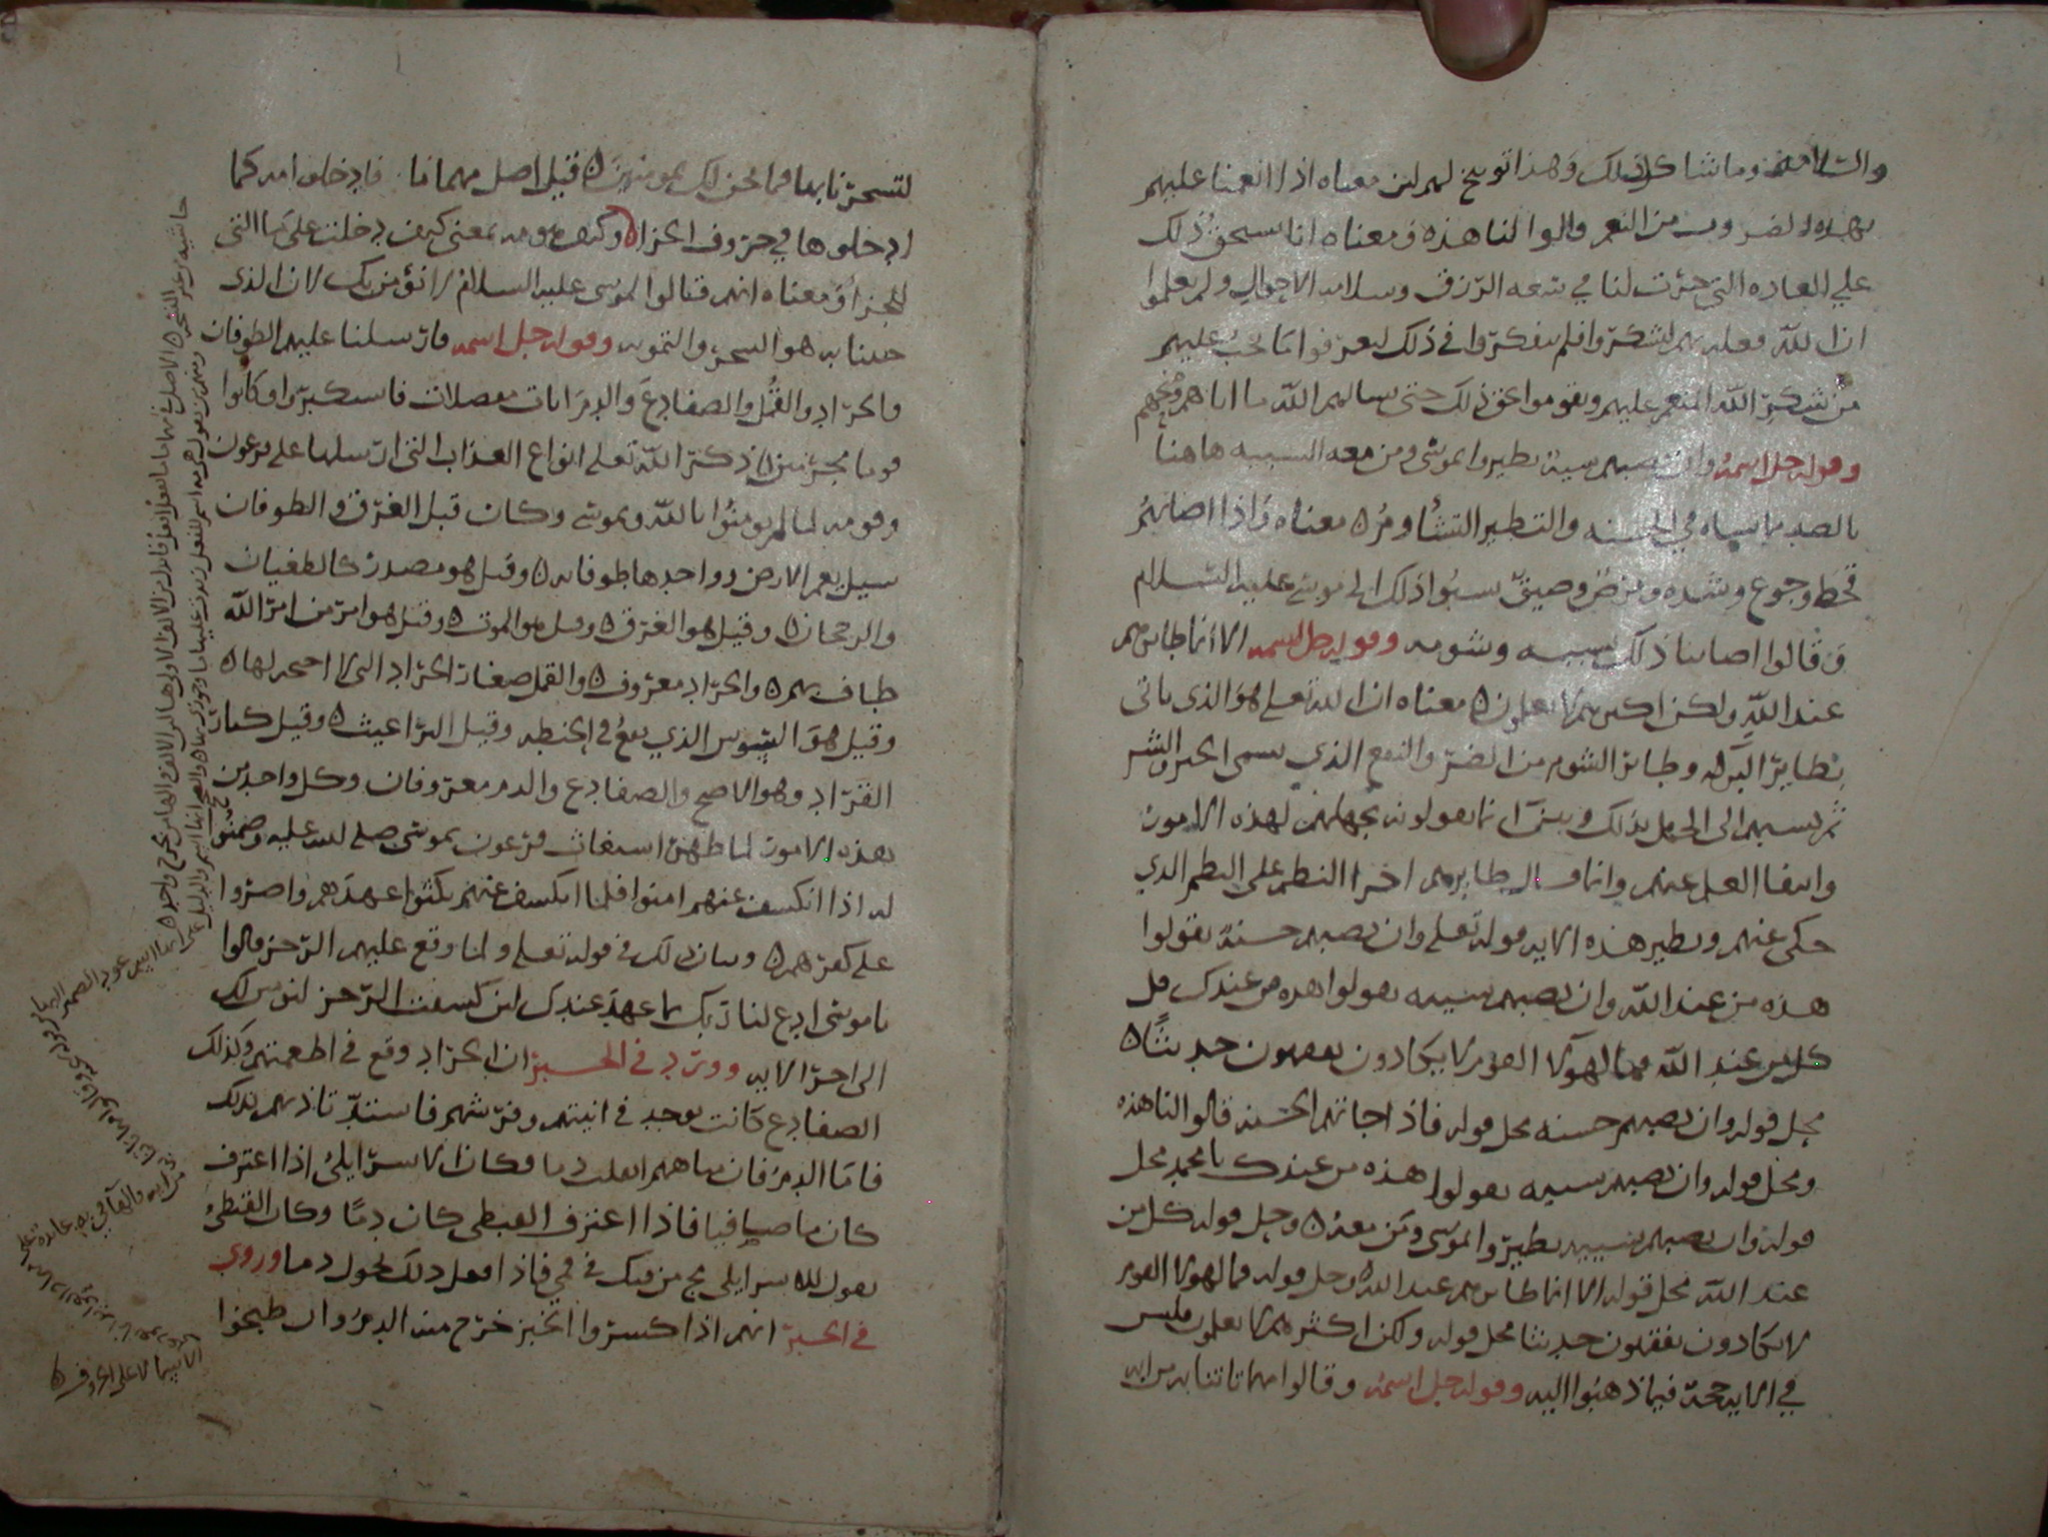 والسلامة وما شاكل ذلك وهذا توبيخ لهم لان معناه اذا انعمنا عليهم
بهذه الضروب من النعم قالوا لنا هذه ومعناه انا نستحق ذلك
علي العاده التي جرت لنا في سعه الرزق وسلامه الاحوال ولم يعلموا
ان الله فعله بهم ليشكروا فلم يفكروا في ذلك ليعرفوا ما يجب عليهم
من شكر الله المنعم عليهم ويقوموا بحق ذلك حتى سالهم الله ما اتاهم
وقوله جل اسمه وان تصبهم سيئة يطيروا بموسى ومن معه السيئه هاهنا
بالضد ما بيناه في الحسنه والتطير التشاوم ه معناه واذا اصابهم
قحط وجوع وشده ومرض وضيق نسبوا ذلك الى موسى عليه السلام
وقالوا اصابنا ذلك بسببه وشومه وقوله جل اسمه الا انما طايرهم
عند الله ولكن اكثرهم لا يعلمون ه معناه ان الله تعلى هو الذي ياتي
بطاير البركه وطاير الشوم من الضر والنفع الذي يسمى الخير والشر
ثم نسبهم الى الجهل بذلك وبين انما يقولونه بجهلهم لهذه الامور
وانتفا العلم عنهم وانما قال طايرهم اخرا النظم على النظم الذي
حكى عنهم ونظير هذه الايه قوله تعلى وان تصبهم حسنة يقولوا
هذه من عند الله وان تصبهم سيئه يقولوا هذه من عندك قل
كل من عند الله فما لهولا القوم لا يكادون يفقهون حديثا ه
محل قوله وان تصبهم حسنه محل قوله فاذا جاتهم الحسنه قالوا لنا هذه
ومحل قوله وان تصبهم سيئه يقولوا هذه من عندك يا محمد محل
قوله وان تصبهم سيئه يطيروا بموسى ومن معه ه ومحل قوله كل من
عند الله محل قوله الا انما طايرهم عند الله ومحل قوله فما لهولا القوم
لا يكادون يفقهون حديثا محل قوله ولكن اكثرهم لا يعلمون فليس
في الايه حجة فيما ذهبوا اليه وقوله جل اسمه وقالوا مهما تاتنا به من ايه
لتسحرنا بها فما نحن لك بمومنين ه قيل اصل مهما ما فادخلوا مه كما
ادخلوها في حروف الجزا ه وكيف ومه بمعنى كيف دخلت على ما التي
للجزا ومعناه انهم قالوا لموسى عليه السلام لا نؤمن بك لان الذي
جئتنا به هو السحر والتمويه وقوله جل اسمه فارسلنا عليهم الطوفان
والجراد والقمل والضفادع والدم ايات مفصلات فاستكبروا وكانوا
قوما مجرمين ه ذكر الله تعلى انواع العذاب التي ارسلها على فرعون
وقومه لما لم يومنوا بالله وبموسى وكان قبل الغرق والطوفان
سيل يعم الارض وواحدها طوفانه ه وقيل هو مصدر كالطغيان
والرجحان ه وقيل هو الغرق ه وقيل هو الموت ه وقيل هو امر من امر الله
طاف بهم ه والجراد معروف ه والقمل صغار الجراد التي لا اجنحه لها ه
وقيل هو السوس الذي يقع في الحنطه وقيل البراغيث ه وقيل كبار
القراد وهو الاصح والضفادع والدم معروفان وكل واحد من
هذه الامور لما ظهر استغاث فرعون بموسى صلى الله عليه وضمنوا
له اذا انكشف عنهم امنوا فلما انكشف عنهم نكثوا عهدهم واصروا
على كفرهم ه وبيان ذلك في قوله تعلى ولما وقع عليهم الرجز قالوا
يا موسى ادع لنا ربك بما عهد عندك لئن كشفت الرجز لنومنن لك
الى اخر الايه وورد في الخبر ان الجراد وقع في اطعمتهم وكذلك
الضفادع كانت توجد في انيتهم وفرشهم فاشتد تاذيهم بذلك
فاما الدم فان مياههم انقلبت دما وكان الاسرايلي اذا اغترف
كان ما صافيا فاذا اغترف القبطي كان دما وكان القبطي
يقول للاسرايلي مج من فيك في في فاذا فعل ذلك تحول دما وروي
في الخبر انهم اذا كسروا الخبز خرج منه الدم وان طبخوا